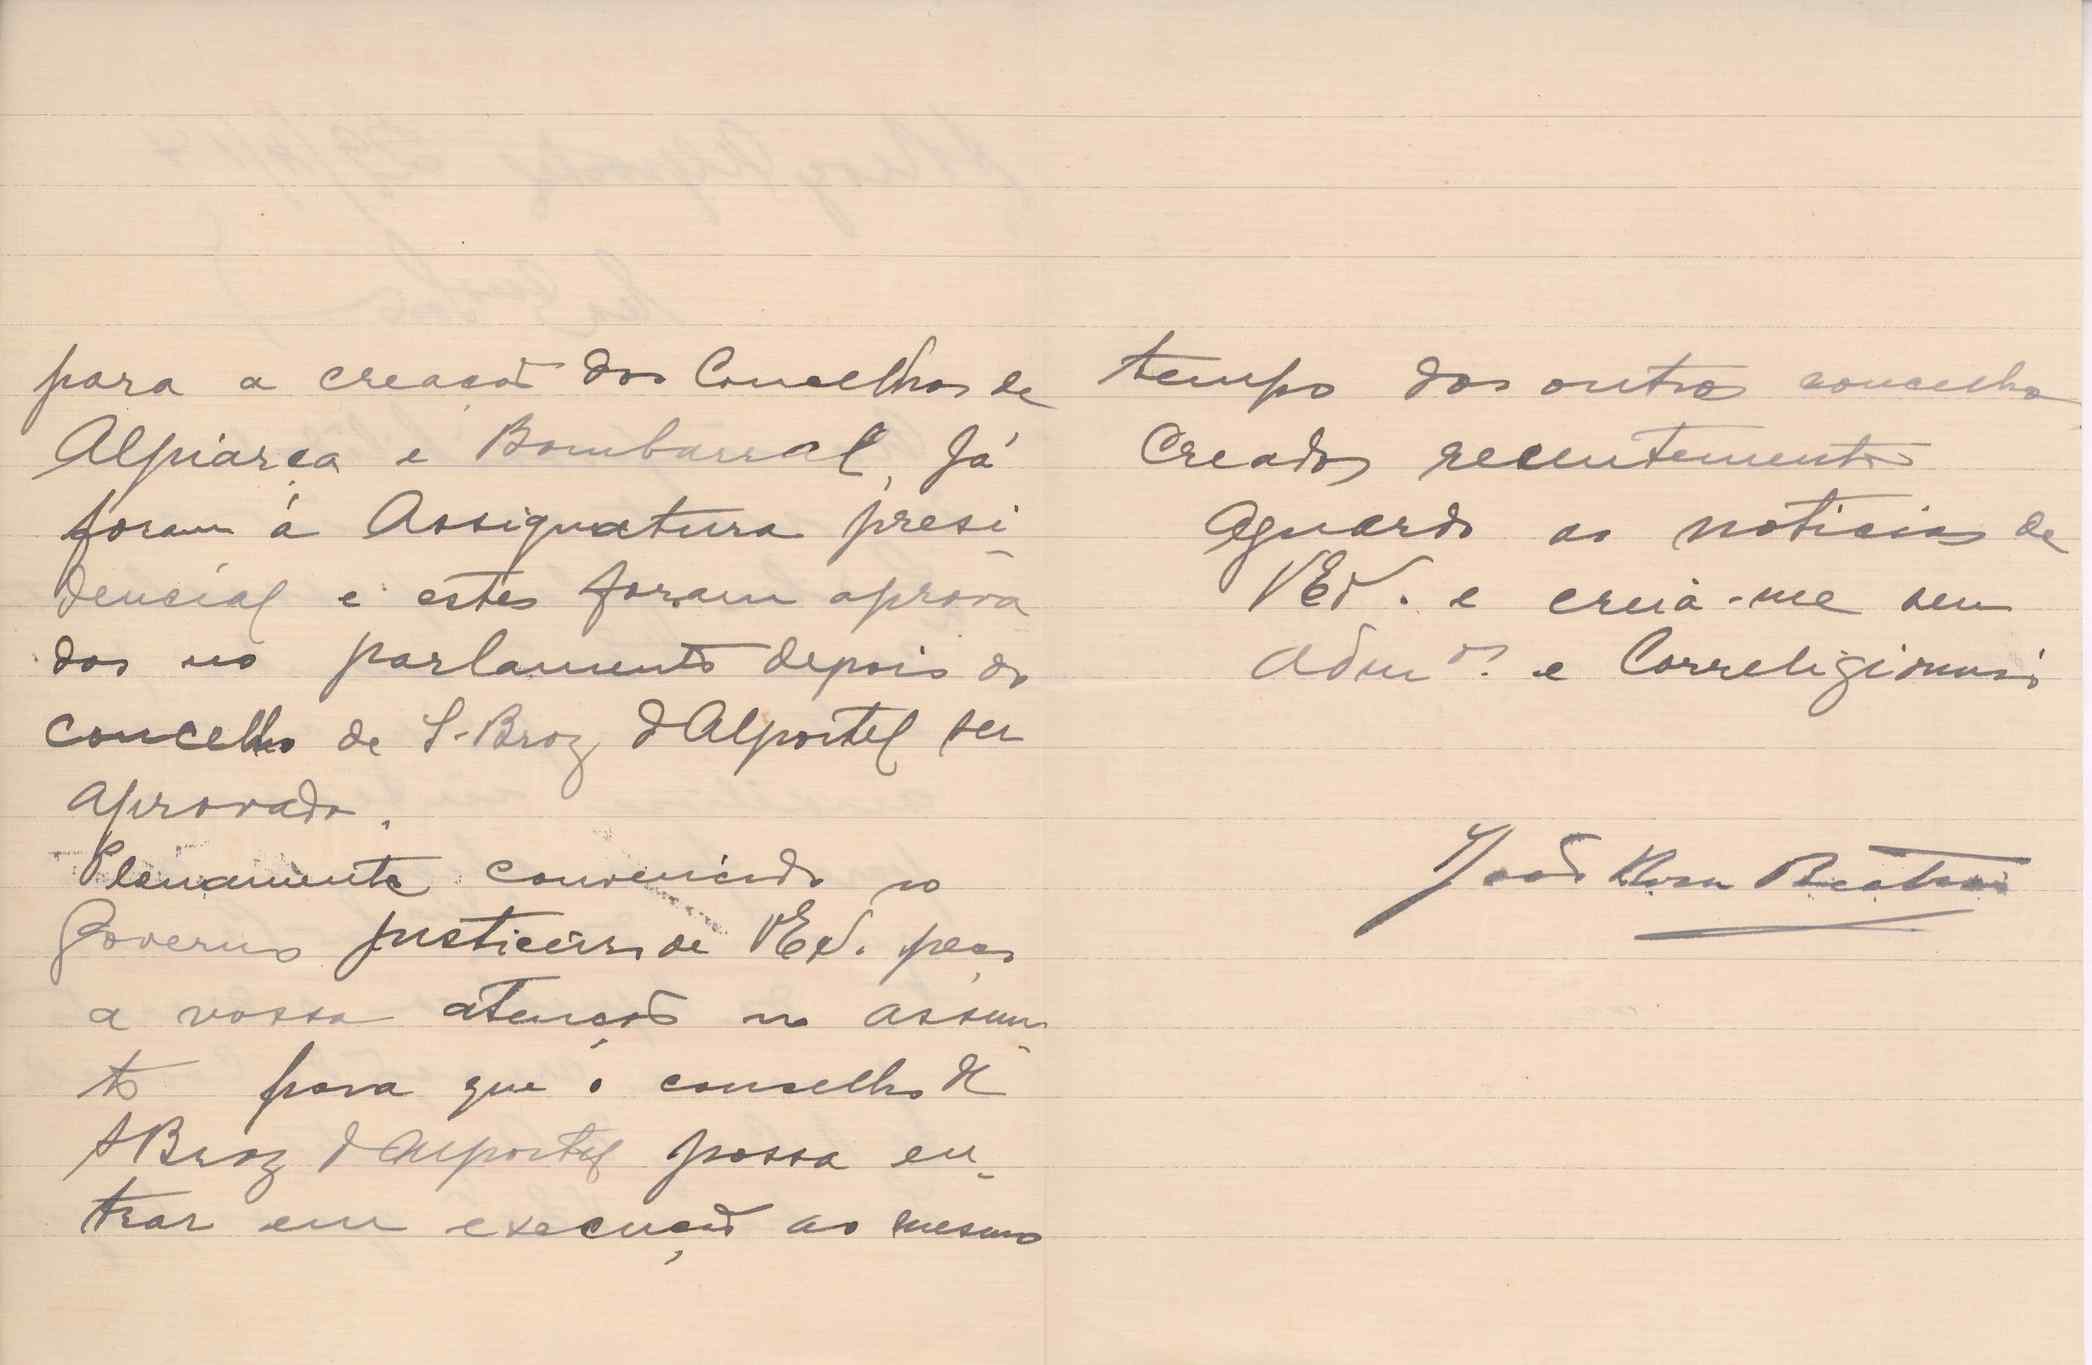 para a creação dos Concelhos de
Alpiarça e Bombarral, Já
foram á Assignatura presi-
dencial e estes foram aprova
dos no parlamento depois do
concelho de S. Braz d'Alportel ser
aprovado.
Plenamente convencido no
Governo justiceiro de V Ex. peço
a vossa atenção no assum-
to para que o conselho de
S Braz d'Alportel possa en-
trar em execução ao mesmo
tempo dos outros concelhos
Creados recentemente
Aguardo as noticias de
V Ex. e creia-me seu
Adm.or e Correligionario
João Rosa Beatriz